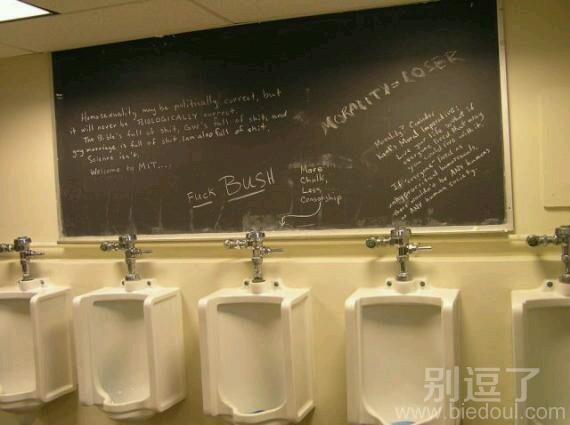 Homosexuality, may be politically correct, but
it will never be BIOLOGICALLY correct.
The Bible's full of shit, Gov's full of shit, and
gay marriage is full of shit. I am also full of shit.
Science isn't.
Welcome to MIT....
Fuck BUSH
More
Chalk,
Less
Censorship
MORALITY = LOSER
Morality? Consider
Kant's Moral Imperative:
Live your life what if
everyone lived that way
you could live with it.
If everyone
homosexuals,
there wouldn't be ANY humans
ANY human society.
别逗了
www.biedoul.com